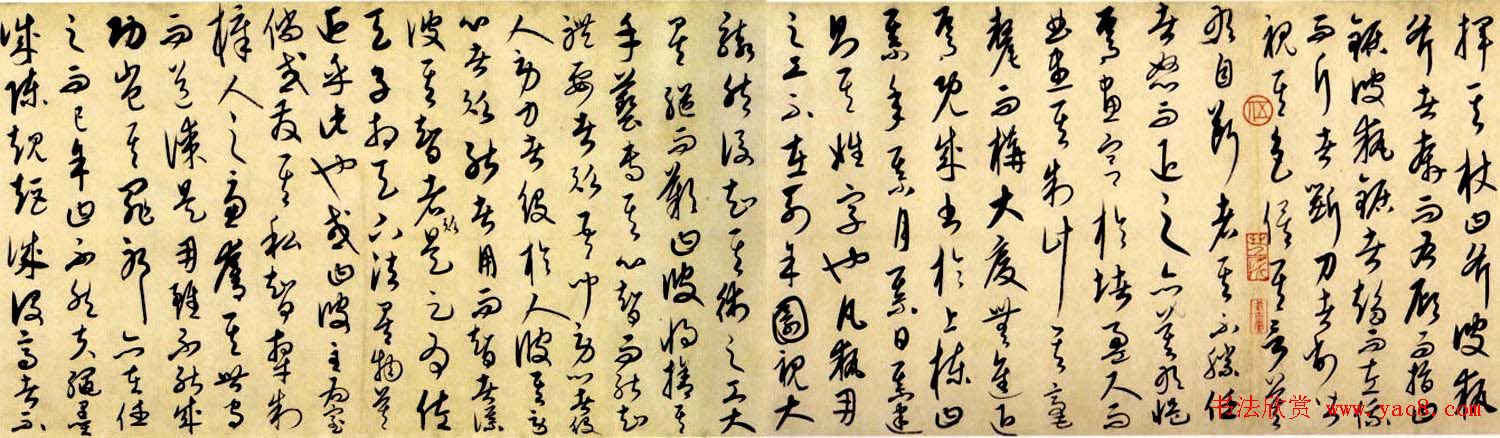 揮其杖曰斧彼執
斧者奔而右顧而指曰
鋸彼執鋸者趨而左俄
而斤者斲刀者削皆
視其色俟其言莫
敢自斷者其不勝任
者怒而退之亦莫敢慍
焉畫宮於堵盈尺而
曲盡其制計其毫
氂而構大廈無進退
焉既成書於上棟曰
某年某月某日某建
則其姓字也凡執用
之工不在列余圜視大
駭然後知其術之工大
矣繼而歎曰彼將捨其
手藝專其心智而能知
體要者歟吾聞勞心者役
人勞力者役於人彼其勞
心者歟能者用而智者謀
彼其智者歟是足為佐
天子相天下法矣物莫
近乎此也或曰彼主為室
儻或發其私智牽制
梓人之慮奪其世守
而道謀是用雖不能成
功豈其罪耶亦在任
之而已余曰不然夫繩墨
誠陳規矩誠設高者不
书法欣赏 www.yac8.com